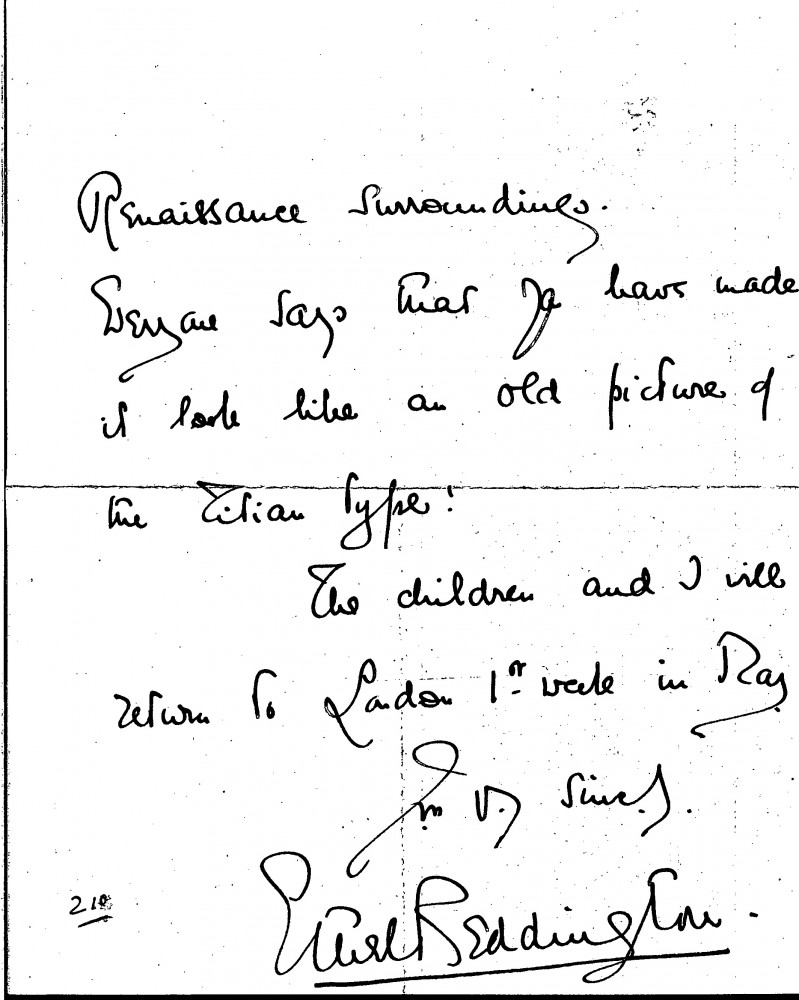 Renaissance surroundings.
Everyone says that you have made
it look like an old picture of
the Titian type!
The children and I will
return to London 1st week in May
Yrs V. Sincely.
Ethel Beddington.